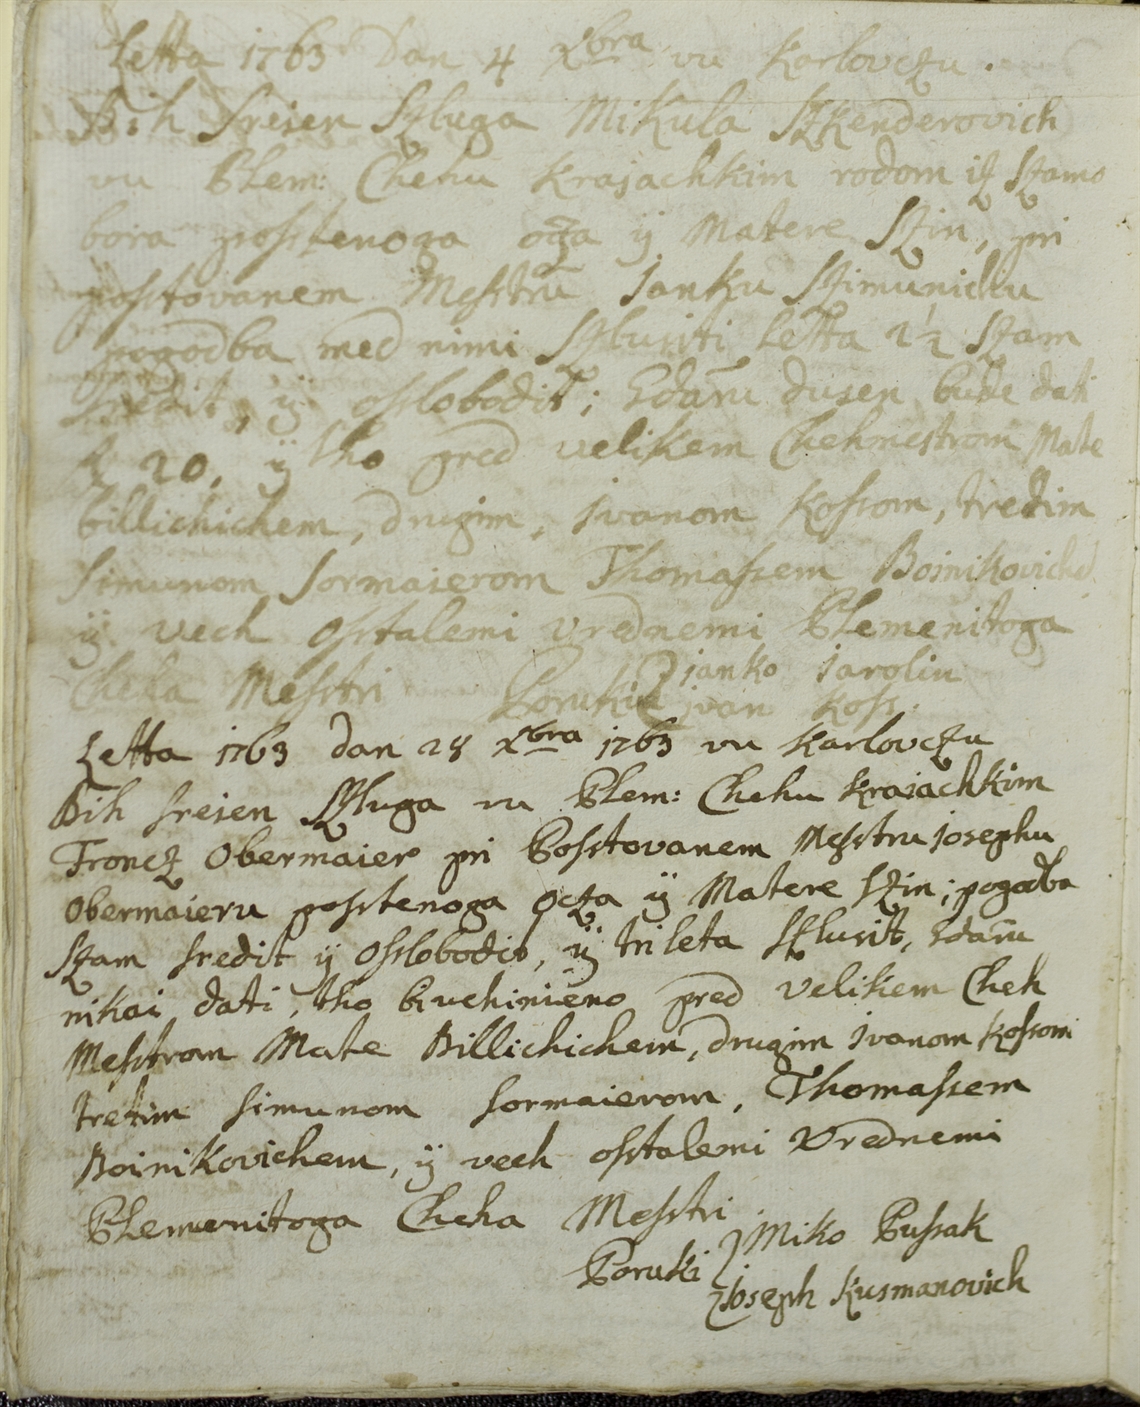 Letta 1763 Dan 4 Xbra vu Karlovczu.
Bih sreien Szluga Mikula Szkenderovich
vu Plem: Chehu Krajachkim rodom iz Szamo
bora posstenoga ocza ÿ Matere Szin, pri
posstovanem Messtru Janku Szimunichu
pogodba med nimi Szlusiti letta 2½ szam
sredit, ÿ osslobodit; Zdaru dusen bude dati
f 20, ÿ tho pred velikem Chehmestrom Mate
billichichem, drugim, ivanom Kossom, tretim
simunom sormaierom Thomassem Boinikoviche
ÿ vech osstalemi vrednemi Plemenitoga
Cheha Messtri Poruki janko jarolin
ivan Koss.
Letta 1763 dan 28 Xbra 1763 vu Karlovczu
Bih sreien Szluga vu Plem: Chehu Kraiachkim
Francz Obermaier pri Posstovanem Messtru josephu
Obermaieru posstenoga Ocza ÿ Matere Szin; pogodba
Szam sredit ÿ Osslobodit, ÿ tri leta Szlusit, zdaru
nikai dati, tho vuchinieno pred Velikem Cheh
Messtrom Mate Billichichem, drugim ivanom Kossom
tretim simunom sormaierom, Thomassem
Boinikovichem, ÿ vech osstalemi Vrednemi
Plemenitoga Cheha Messtri
Poruki Miko Pussak
Joseph Kusmanovich